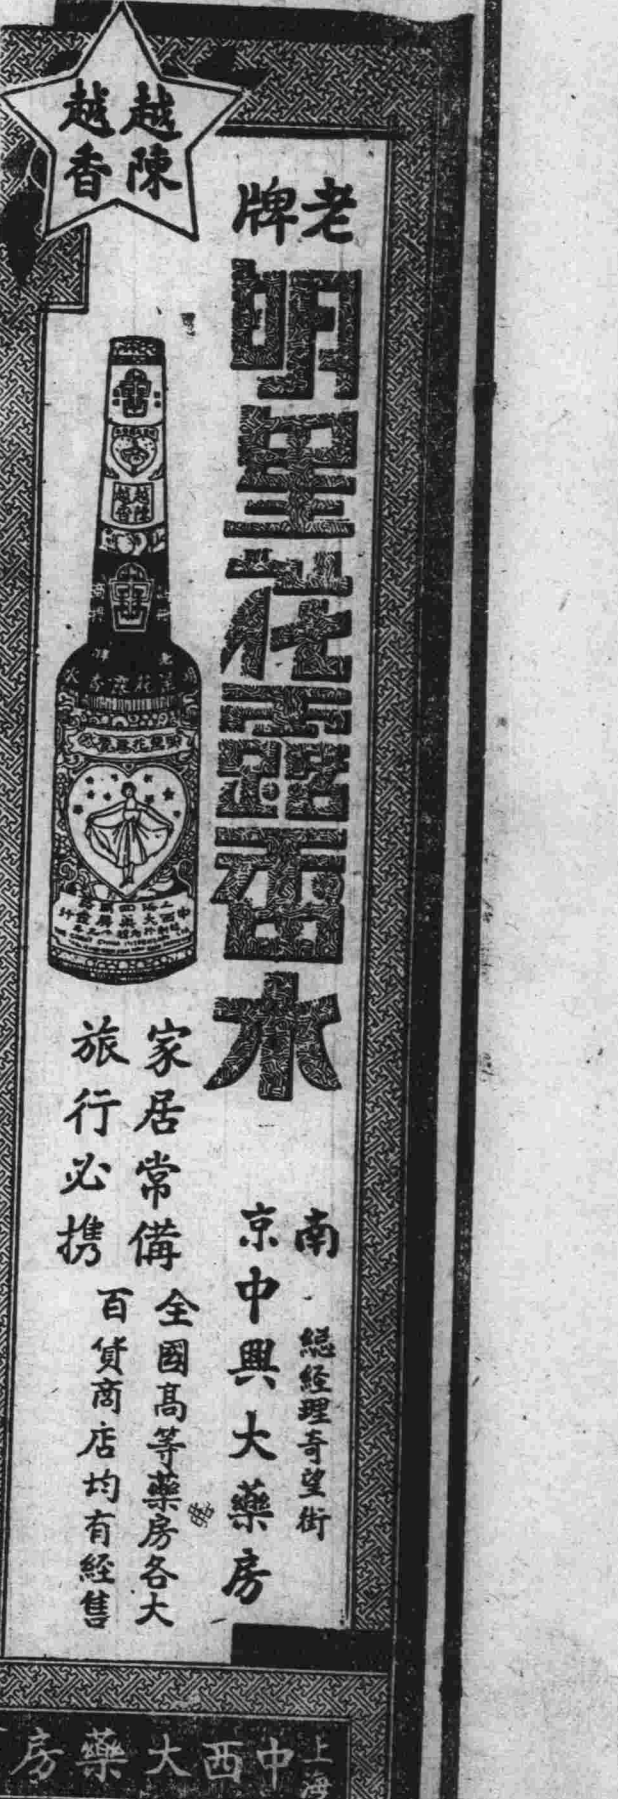 越陳
越香
老牌
明星花露香水
越陳
越香
明星花露香水
家居常備
旅行必携
南京中興大藥房
總經理奇望街
全國高等藥房各大
百貨商店均有經售
上海中西大藥房